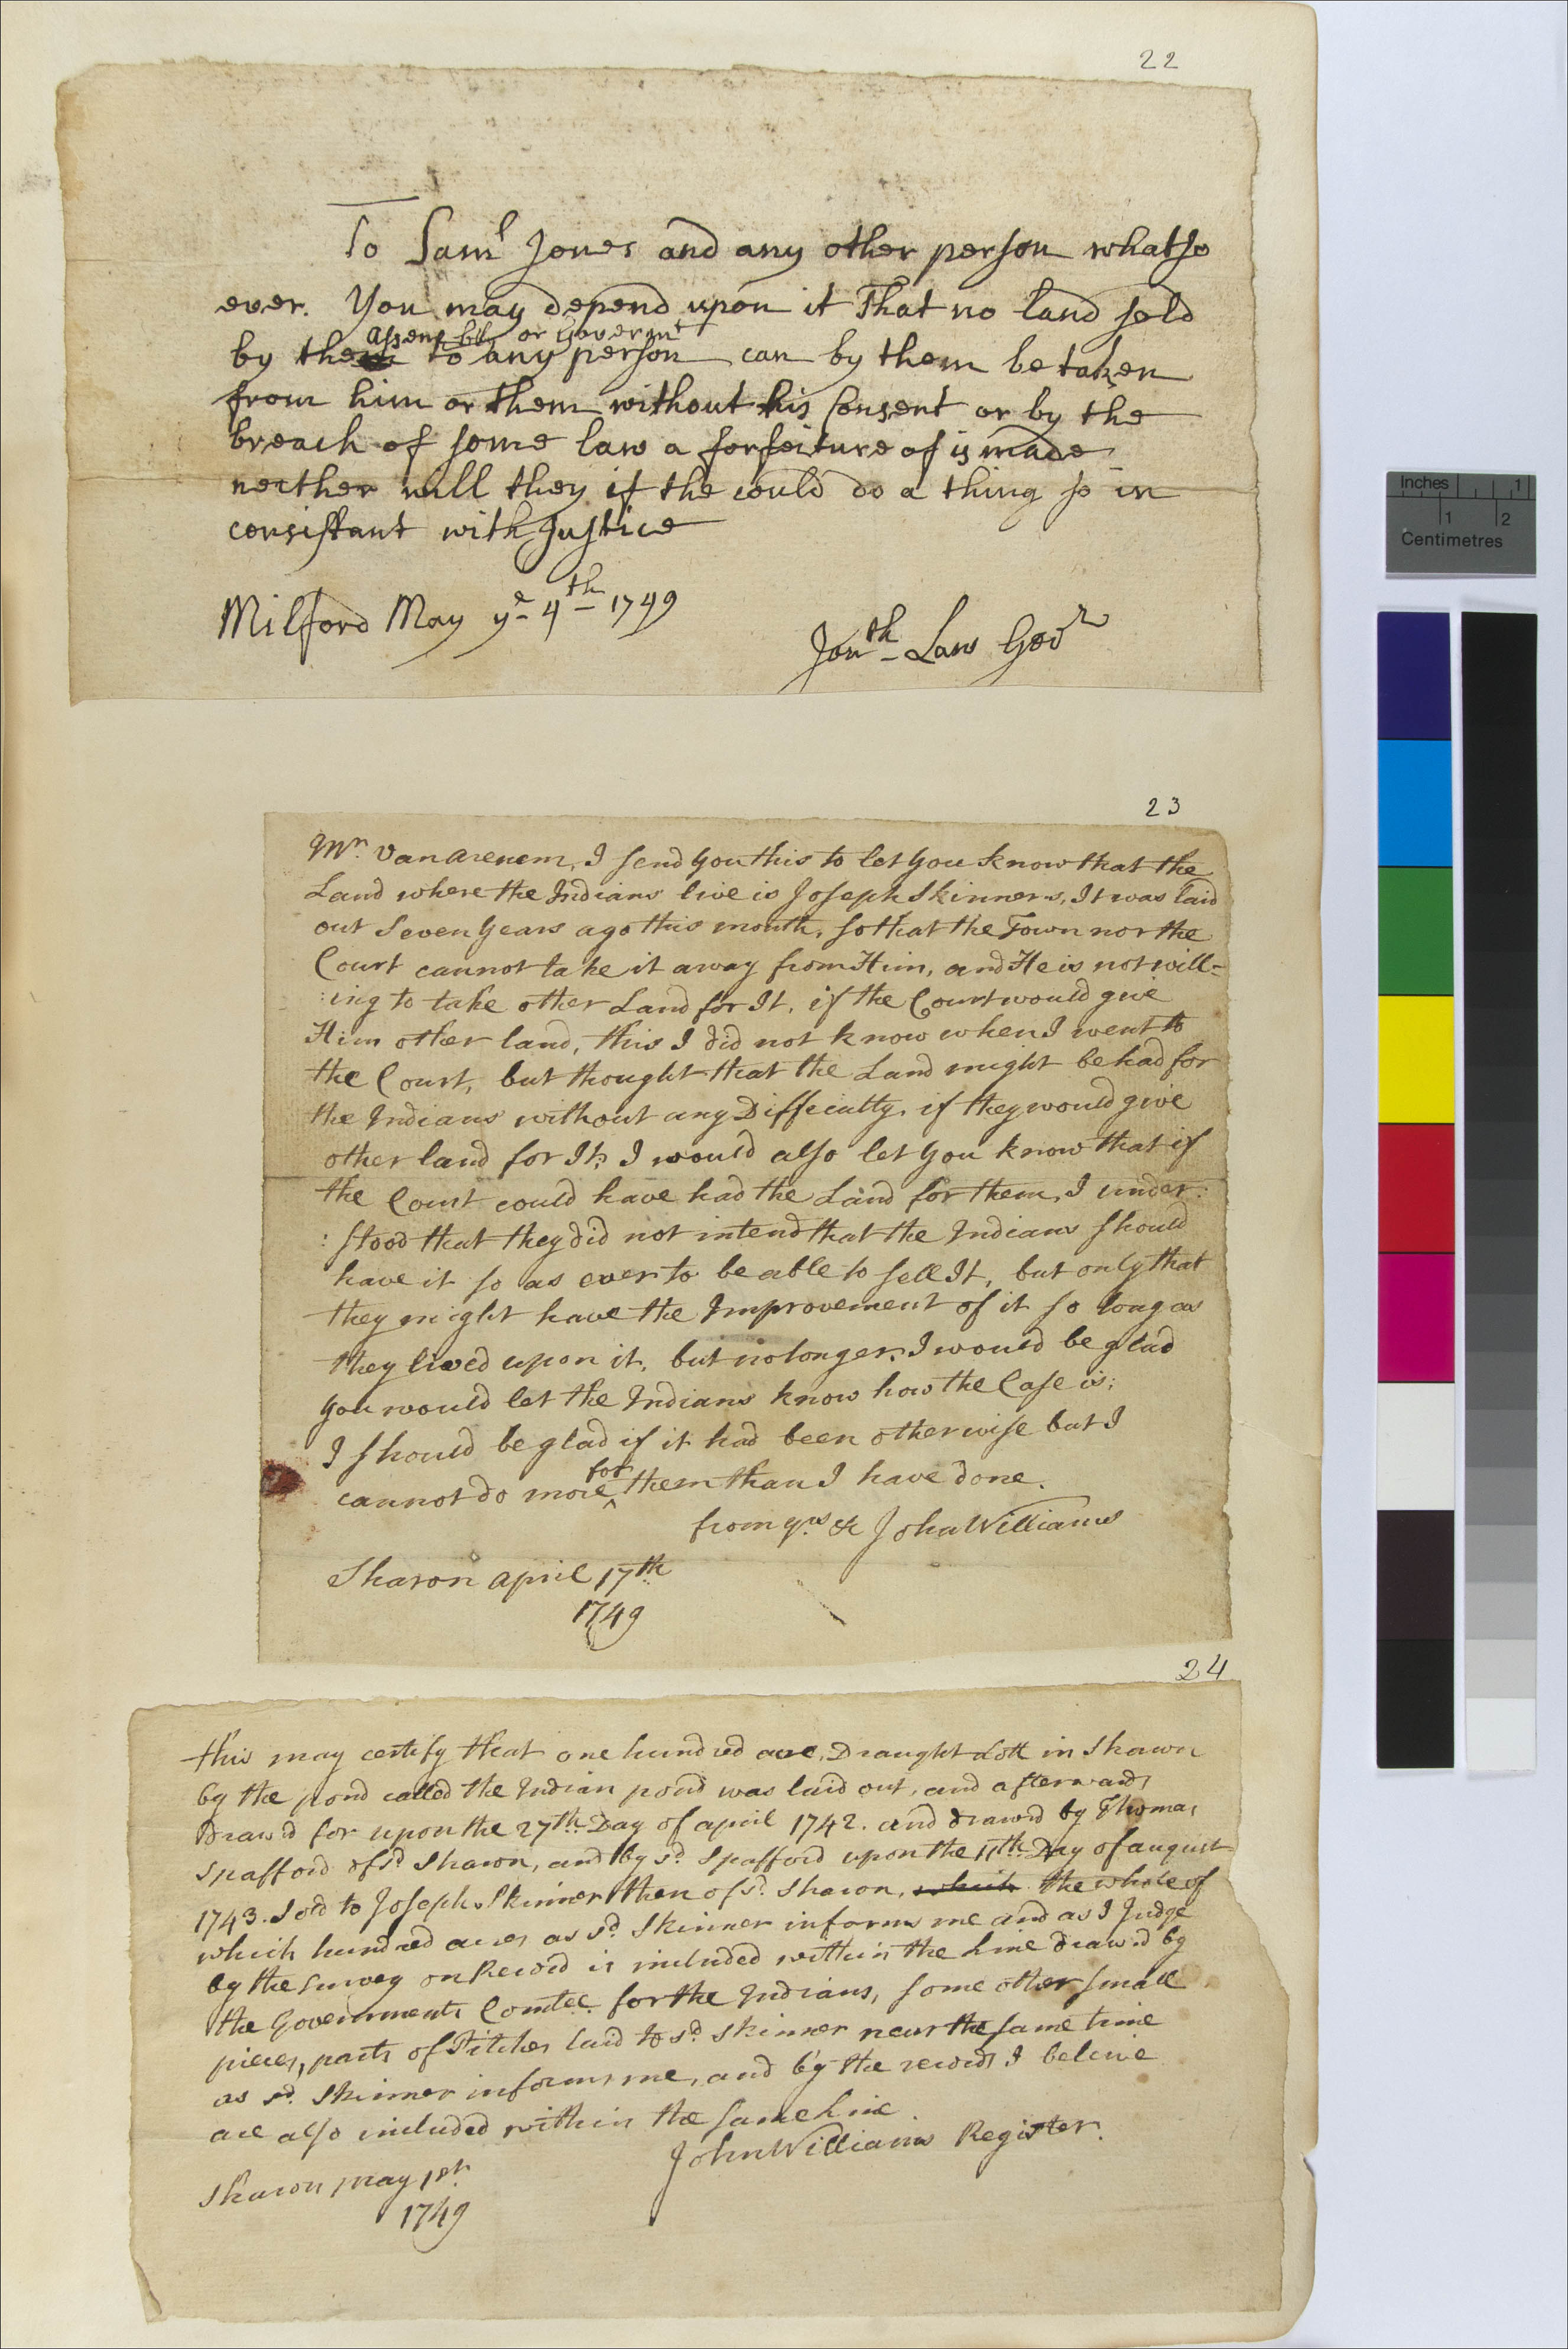 22
To Saml Jones and any other person whatso
ever. You may depend upon it That no land sold
assembly or Govermt
by the to any person can by them be taken
from him or them without his Consent or by the
breach of some law a forfeiture of is made
neither will they if the could do a thing so in
consistant with Justice
Milford May ye 4th 1749
Jonth Law Govr
23
Mr. Vanarenem, I send you this to let you know that the
Land where the Indians live is Joseph Skinners, It was laid
out Seven years ago this month, so that the Town nor the
Court cannot take it away from Him, and He is not will=
:ing to take other Land for It, if the Court would give
Him other land, this I did not know when I went to
the Court, but thought that the Land might be had for
the Indians without any Difficulty, if they would give
other land for It; I would also let you know that if
the Court could have had the Land for them, I under:
:stood that they did not intend that the Indians should
have it so as ever to be able to sell It, but only that
they might have the Improvement of it so long as
they lived upon it, but no longer. I would be glad
you would let the Indians know how the Case is;
I should be glad if it had been otherwise but I
for
cannot do more ^ them than I have done.
from yrs &c John Williams
Sharon april 17th
1749
24
this may certify that one hundred acre Draught Lott in Sharon
by the pond called the Indian pond was laid out, and afterwards
Draw'd for upon the 27th Day of april 1742. and draw'd by Thomas
Spafford of sd. Sharon, and by sd. Spafford upon the 11th Day of august
1743. Sold to Joseph Skinner then of sd. Sharon, which the whole of
which hundred acres as sd. Skinner informs me and as I Judge
by the Survey on Record is included within the Line draw'd by
the Governments Comtee for the Indians, some other small
pieces, parts of Pitches laid to sd. Skinner near the same time
as sd. Skinner informs me, and by the records I beleive
are also included within the same Line
John Williams Register.
Sharon may 1st
1749
Inches 1
1 2
Centimetres